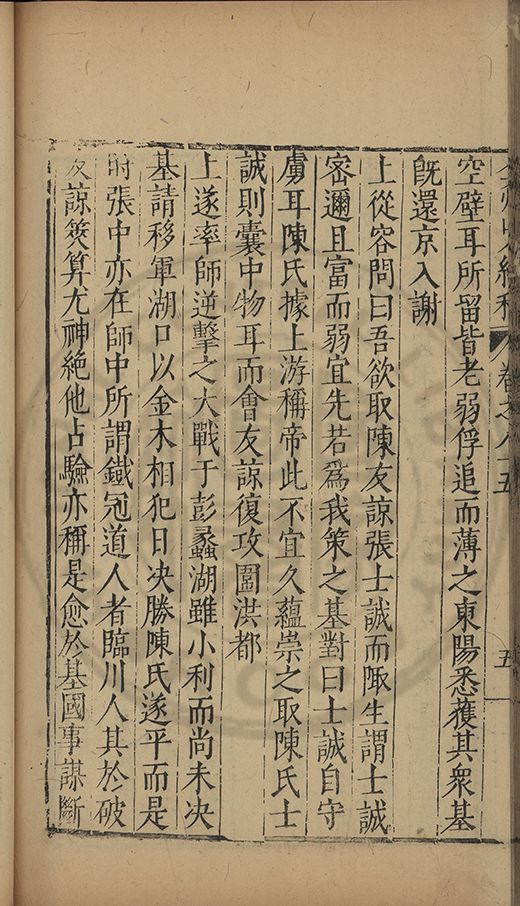 卷之八十五
五
空壁耳所留皆老弱俘追而薄之東陽悉獲其衆基
旣還京入謝
上從容問曰吾欲取陳友諒張士誠而陬生謂士誠
密邇且富而弱宜先若爲我策之基對曰士誠自守
虜耳陳氏據上游稱帝此不宜久蘊崇之取陳氏士
誠則囊中物耳而會友諒復攻圍洪都
上遂率師逆擊之大戰于彭蠡湖雖小利而尚未决
基請移軍湖口以金木相犯日决勝陳氏遂平而是
時張中亦在師中所謂鐵冠道人者臨川人其於破
友諒筴算尤神絶他占驗亦稱是愈於基國事謀斷